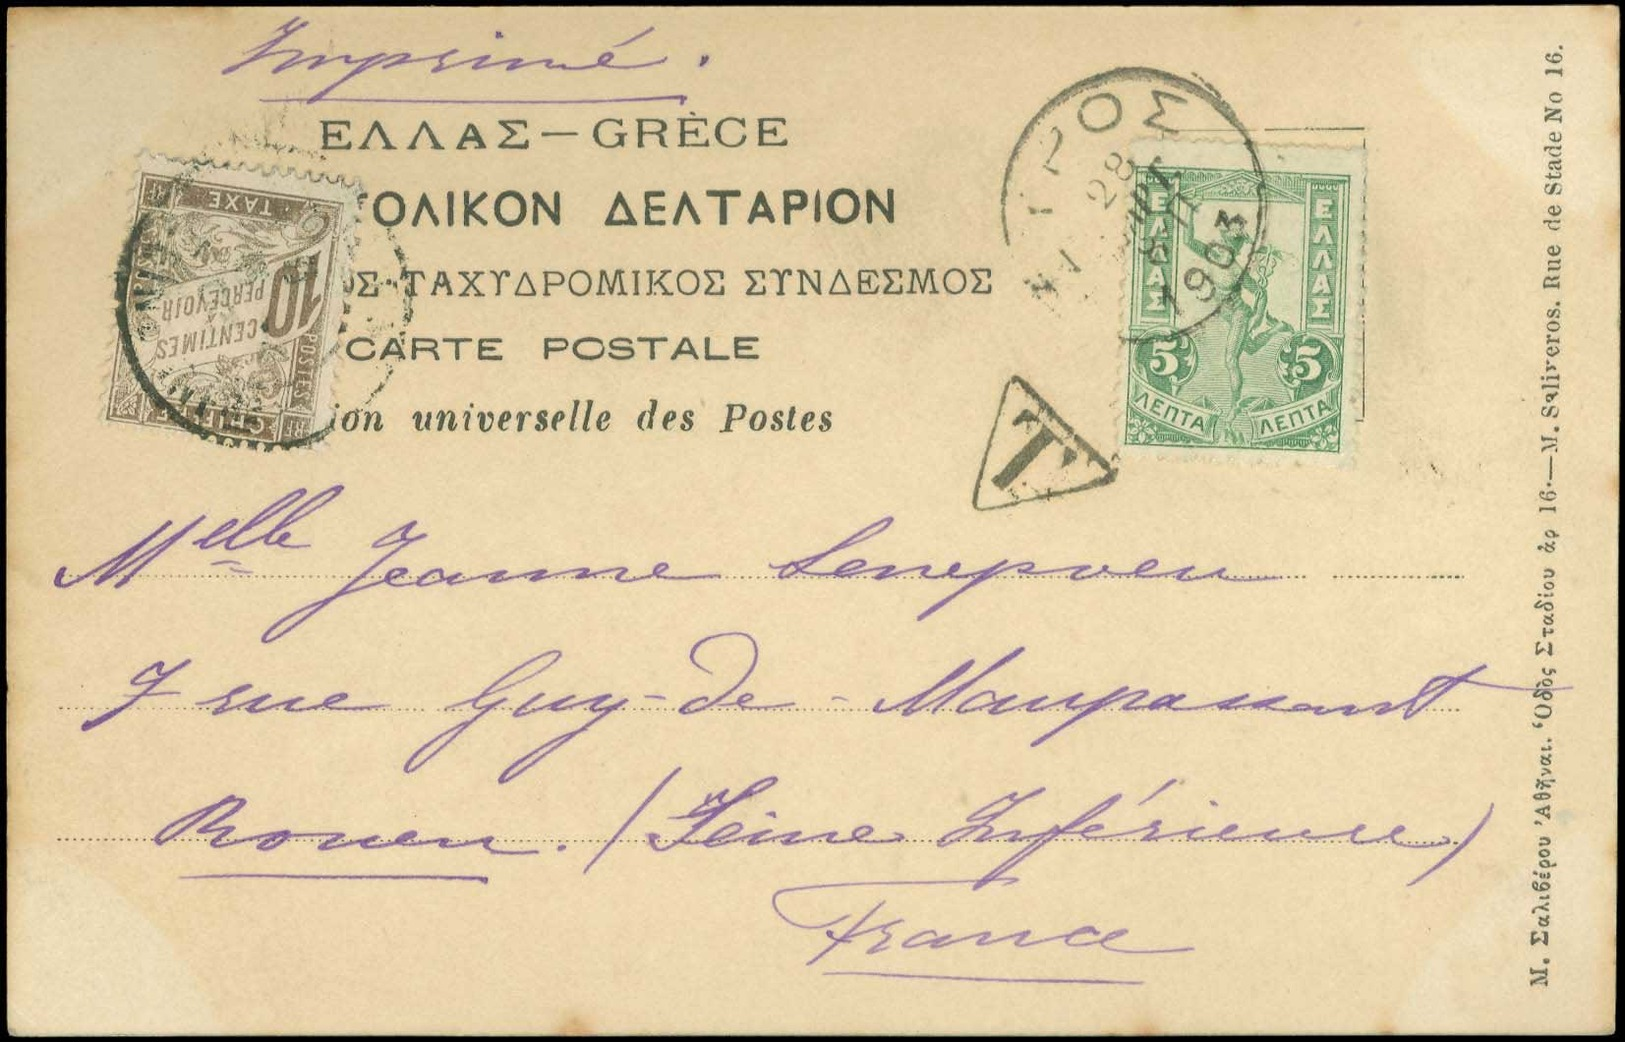 Imprimé.
ΕΛΛΑΣ — GRÈCE
ΤΟΛΙΚΟΝ ΔΕΛΤΑΡΙΟΝ
ΟΣ ΤΑΧΥΔΡΟΜΙΚΟΣ ΣΥΝΔΕΣΜΟΣ
CARTE POSTALE
ion universelle des Postes
TAXE
10
CENTIMES
À
PERCEVOIR
POSTES
CHIFFRE
RF
ΠΥΡΓΟΣ
28
ΣΕΠΤ
1903
ΕΛΛΑΣ
ΕΛΛΑΣ
5 5
ΛΕΠΤΑ ΛΕΠΤΑ
T
Melle Jeanne Lenepveu
7 rue Guy-de-Maupassant
Rouen. (Seine Inférieure)
France
Μ. Σαλιβέρου Ἀθῆναι. Ὁδὸς Σταδίου ἀρ 16.—M. Saliveros. Rue de Stade No 16.